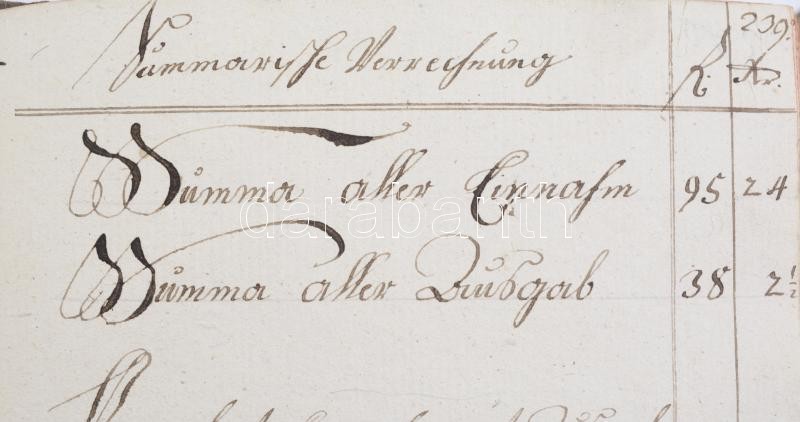 239.
Summarische Verrechnung R. Xr.
Summa aller Einnahm 95 24
Summa aller Ausgab 38 2½
darabanth